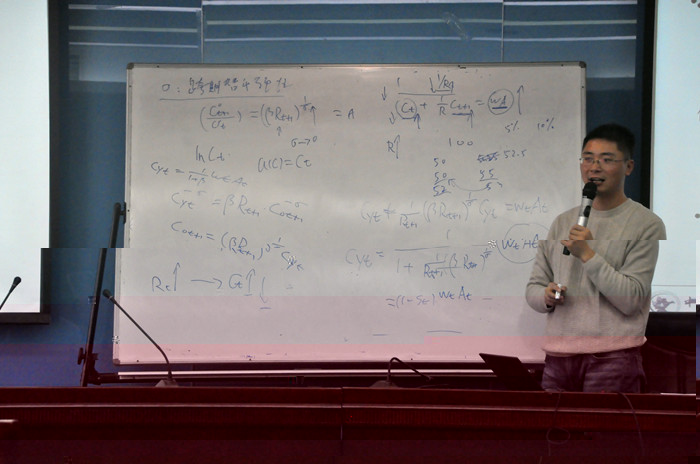 σ: 跨期替代弹性
(C_{t+1}/C_t) = (βR_{t+1})^{1/σ} = A
σ→0
ln C_t   u(C) = C_t
C_{yt} = 1/(1+β) w_t A_t
C_{yt}^{-σ} = βR_{t+1} · C_{ot+1}^{-σ}
C_{ot+1} = (βR_{t+1})^{1/σ} C_{yt}
R_t↑ → C_t↑ (
↓ ↓1/R
C_t + 1/R C_{t+1} = wA ↑
5% 10%
R↑ 100
50 52.5
50
C_{yt} + 1/R_{t+1} (βR_{t+1})^{1/σ} C_{yt} = w_t A_t
C_{yt} = 1/(1 + 1/R_{t+1} (βR_{t+1})^{1/σ}) w_t A_t
= (1-s_t) w_t A_t
中